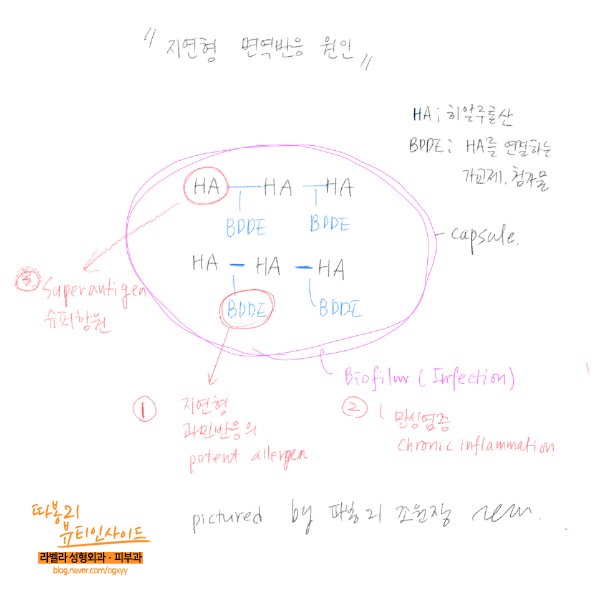 " 지연형 면역반응 원인 "
HA ; 히알루론산
BDDE ; HA를 연결하는
가교제, 첨가물
HA HA HA
BDDE BDDE
HA HA HA
BDDE BDDE
capsule.
③ Superantigen
슈퍼항원
Biofilm ( Infection )
① 지연형
과민반응의
potent allergen
② 만성염증
chronic inflammation
pictured by 따봉리 조원장
따봉리
뷰티인사이드
라벨라 성형외과 · 피부과
blog.naver.com/ogxyy